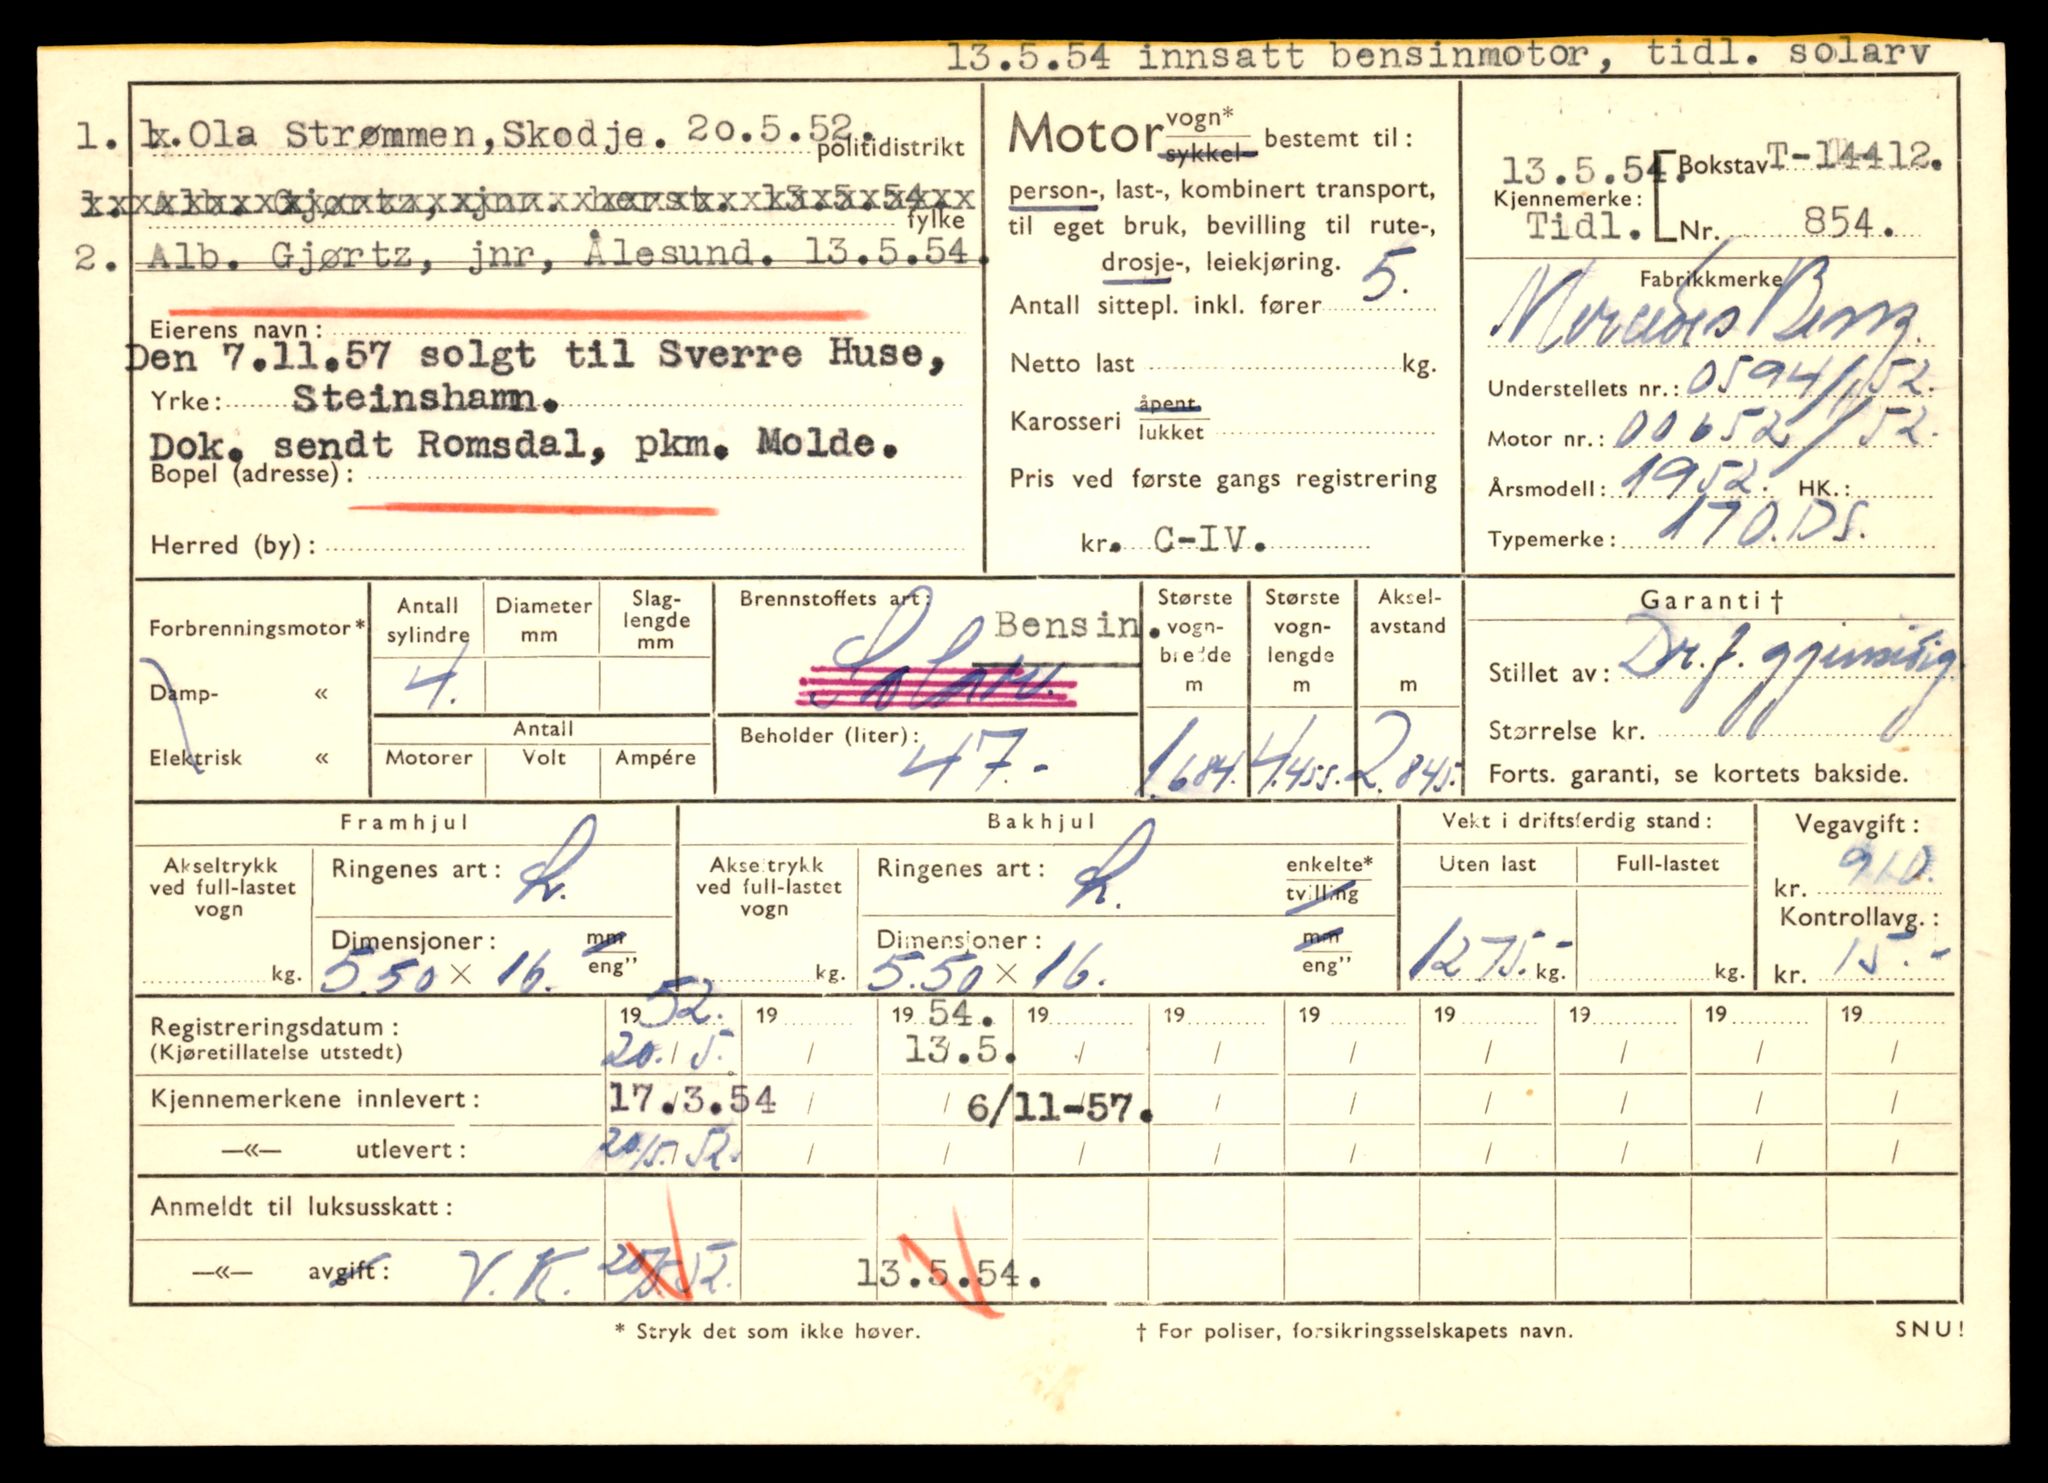 13.5.54 innsatt bensinmotor, tidl. solarv
1. Ola Strømmen, Skodje. 20.5.52.
politidistrikt
1. Alb. Gjørtz, jnr. 13.5.54.
fylke
2. Alb. Gjørtz, jnr, Ålesund. 13.5.54.
Eierens navn:
Den 7.11.57 solgt til Sverre Huse,
Yrke: Steinshamn.
Dok. sendt Romsdal, pkm. Molde.
Bopel (adresse):
Herred (by):
Motor vogn* sykkel bestemt til:
person-, last-, kombinert transport,
til eget bruk, bevilling til rute-,
drosje-, leiekjøring.
Antall sittepl. inkl. fører 5.
Netto last kg.
Karosseri åpent lukket
Pris ved første gangs registrering
kr. C-IV.
13.5.54. Bokstav T-14412.
Kjennemerke:
Tidl. Nr. 854.
Fabrikkmerke
Mercedes Benz.
Understellets nr.: 0594/52.
Motor nr.: 00652/52.
Årsmodell: 1952. HK.:
Typemerke: 170.DS.
Forbrenningsmotor*
Damp- «
Elektrisk «
Antall sylindre 4.
Diameter mm
Slag-lengde mm
Antall
Motorer Volt Ampére
Brennstoffets art: Bensin.
Solarv.
Beholder (liter): 47.-
Største vogn-bredde m 1.684.
Største vogn-lengde m 4.455.
Aksel-avstand m 2.845.
Garanti†
Stillet av: Dr. f.
Størrelse kr.
Forts. garanti, se kortets bakside.
Framhjul
Akseltrykk ved full-lastet vogn kg.
Ringenes art: L.
Dimensjoner: mm eng”
5.50 × 16.
Bakhjul
Akseltrykk ved full-lastet vogn kg.
Ringenes art: L. enkelte* tvilling
Dimensjoner: mm eng”
5.50 × 16.
Vekt i driftsferdig stand:
Uten last Full-lastet
1275.- kg. kg.
Vegavgift:
kr. 910.
Kontrollavg.:
kr. 15.-
19 52. 19 19 54. 19 19 19 19 19 19 19
Registreringsdatum: 20. / 5. / 13.5. / / / / / / /
(Kjøretillatelse utstedt)
Kjennemerkene innlevert: 17.3.54 / / 6/11-57. / / / / / /
—«— utlevert: 20/5. 52. / / / / / / / / /
Anmeldt til luksusskatt:
—«— avgift: V.K. 20/5 52. 13.5.54.
* Stryk det som ikke høver.
† For poliser, forsikringsselskapets navn.
SNU!